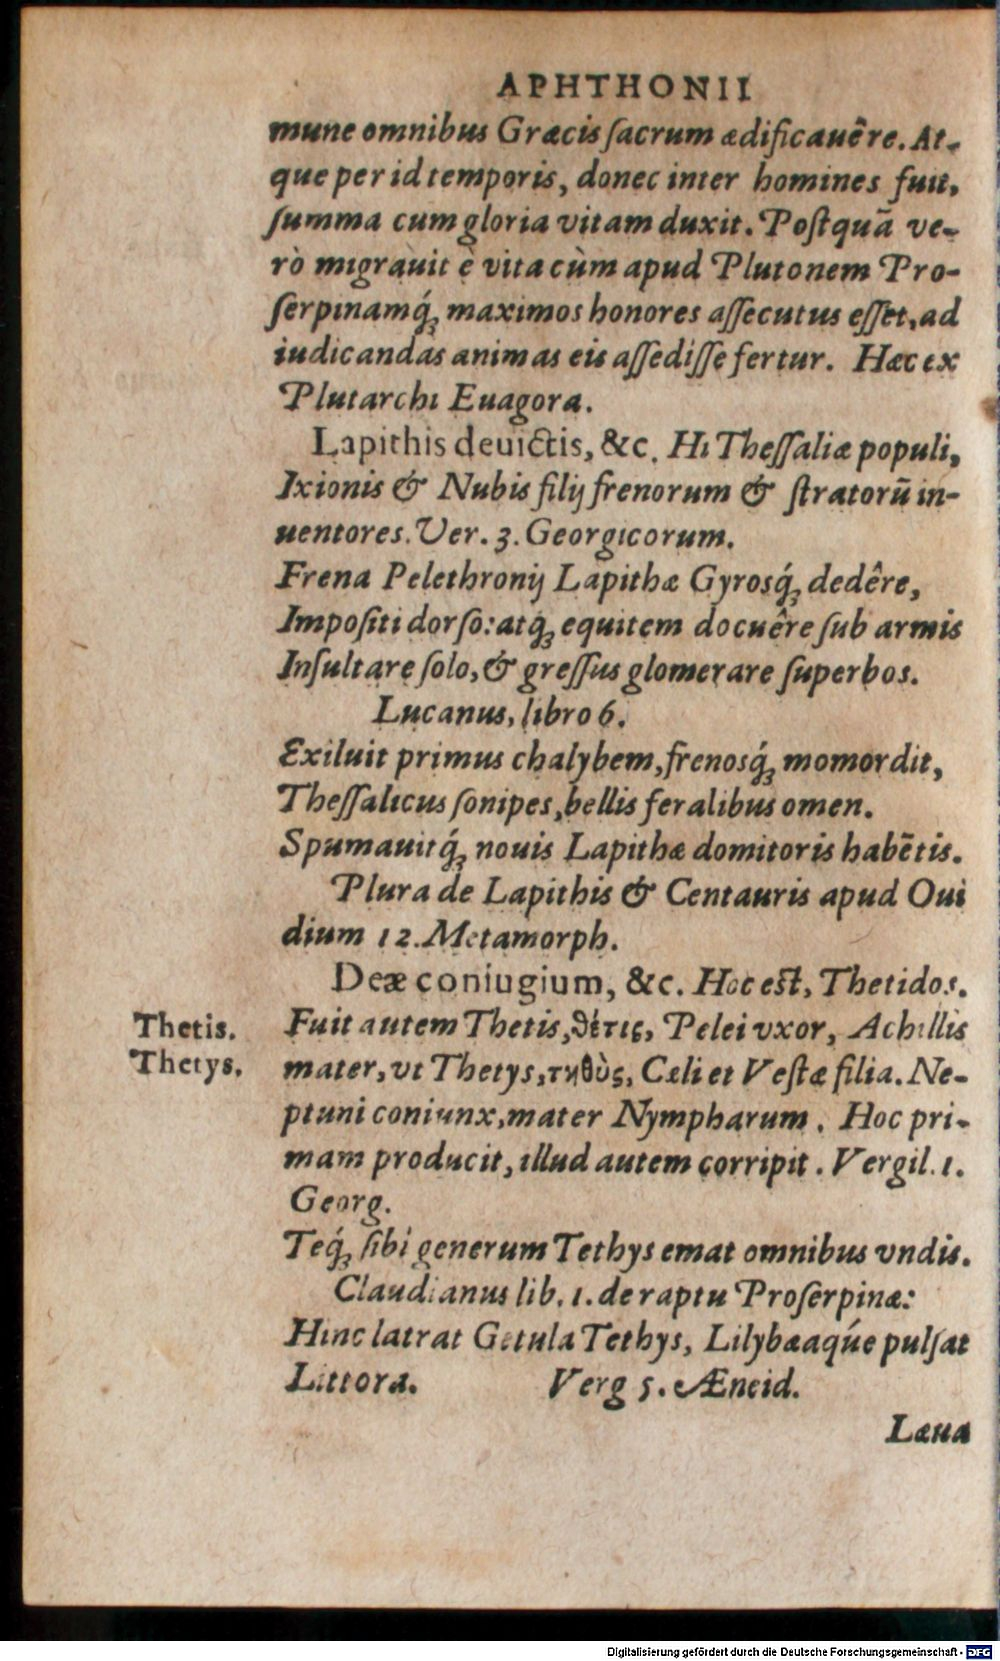 APHTHONII
mune omnibus Græcis ſacrum ædificauêre. At-
que per id temporis, donec inter homines fuit,
ſumma cum gloria vitam duxit. Poſtquã ve-
rò migrauit è vita cùm apud Plutonem Pro-
ſerpinamq́ꝫ maximos honores aſſecutus eſſet, ad
iudicandas animas eis aſſediſſe fertur. Hæc ex
Plutarchi Euagora.
Lapithis deuictis, &c. Hi Theſſaliæ populi,
Ixionis & Nubis filij frenorum & ſtratorũ in-
uentores. Ver. 3. Georgicorum.
Frena Pelethronij Lapithæ Gyrosq́ꝫ dedêre,
Impoſiti dorſo: atq́ꝫ equitem docuêre ſub armis
Inſultare ſolo, & greſſus glomerare ſuperbos.
Lucanus, libro 6.
Exiluit primus chalybem, frenosq́ꝫ momordit,
Theſſalicus ſonipes, bellis feralibus omen.
Spumauitq́ꝫ nouis Lapithæ domitoris habẽtis.
Plura de Lapithis & Centauris apud Oui
dium 12. Metamorph.
Deæ coniugium, &c. Hoc eſt, Thetidos.
Thetis. Fuit autem Thetis, θέτις, Pelei vxor, Achillis
Thetys. mater, vt Thetys, τηθὺς, Cæli et Veſtæ filia. Ne-
ptuni coniunx, mater Nympharum. Hoc pri-
mam producit, illud autem corripit. Vergil. 1.
Georg.
Teq́ꝫ ſibi generum Tethys emat omnibus vndis.
Claudianus lib. 1. de raptu Proſerpinæ:
Hinc latrat Getula Tethys, Lilybæaq́ue pulſat
Littora. Verg 5. Æneid.
Læua
Digitalisierung gefördert durch die Deutsche Forschungsgemeinschaft - DFG